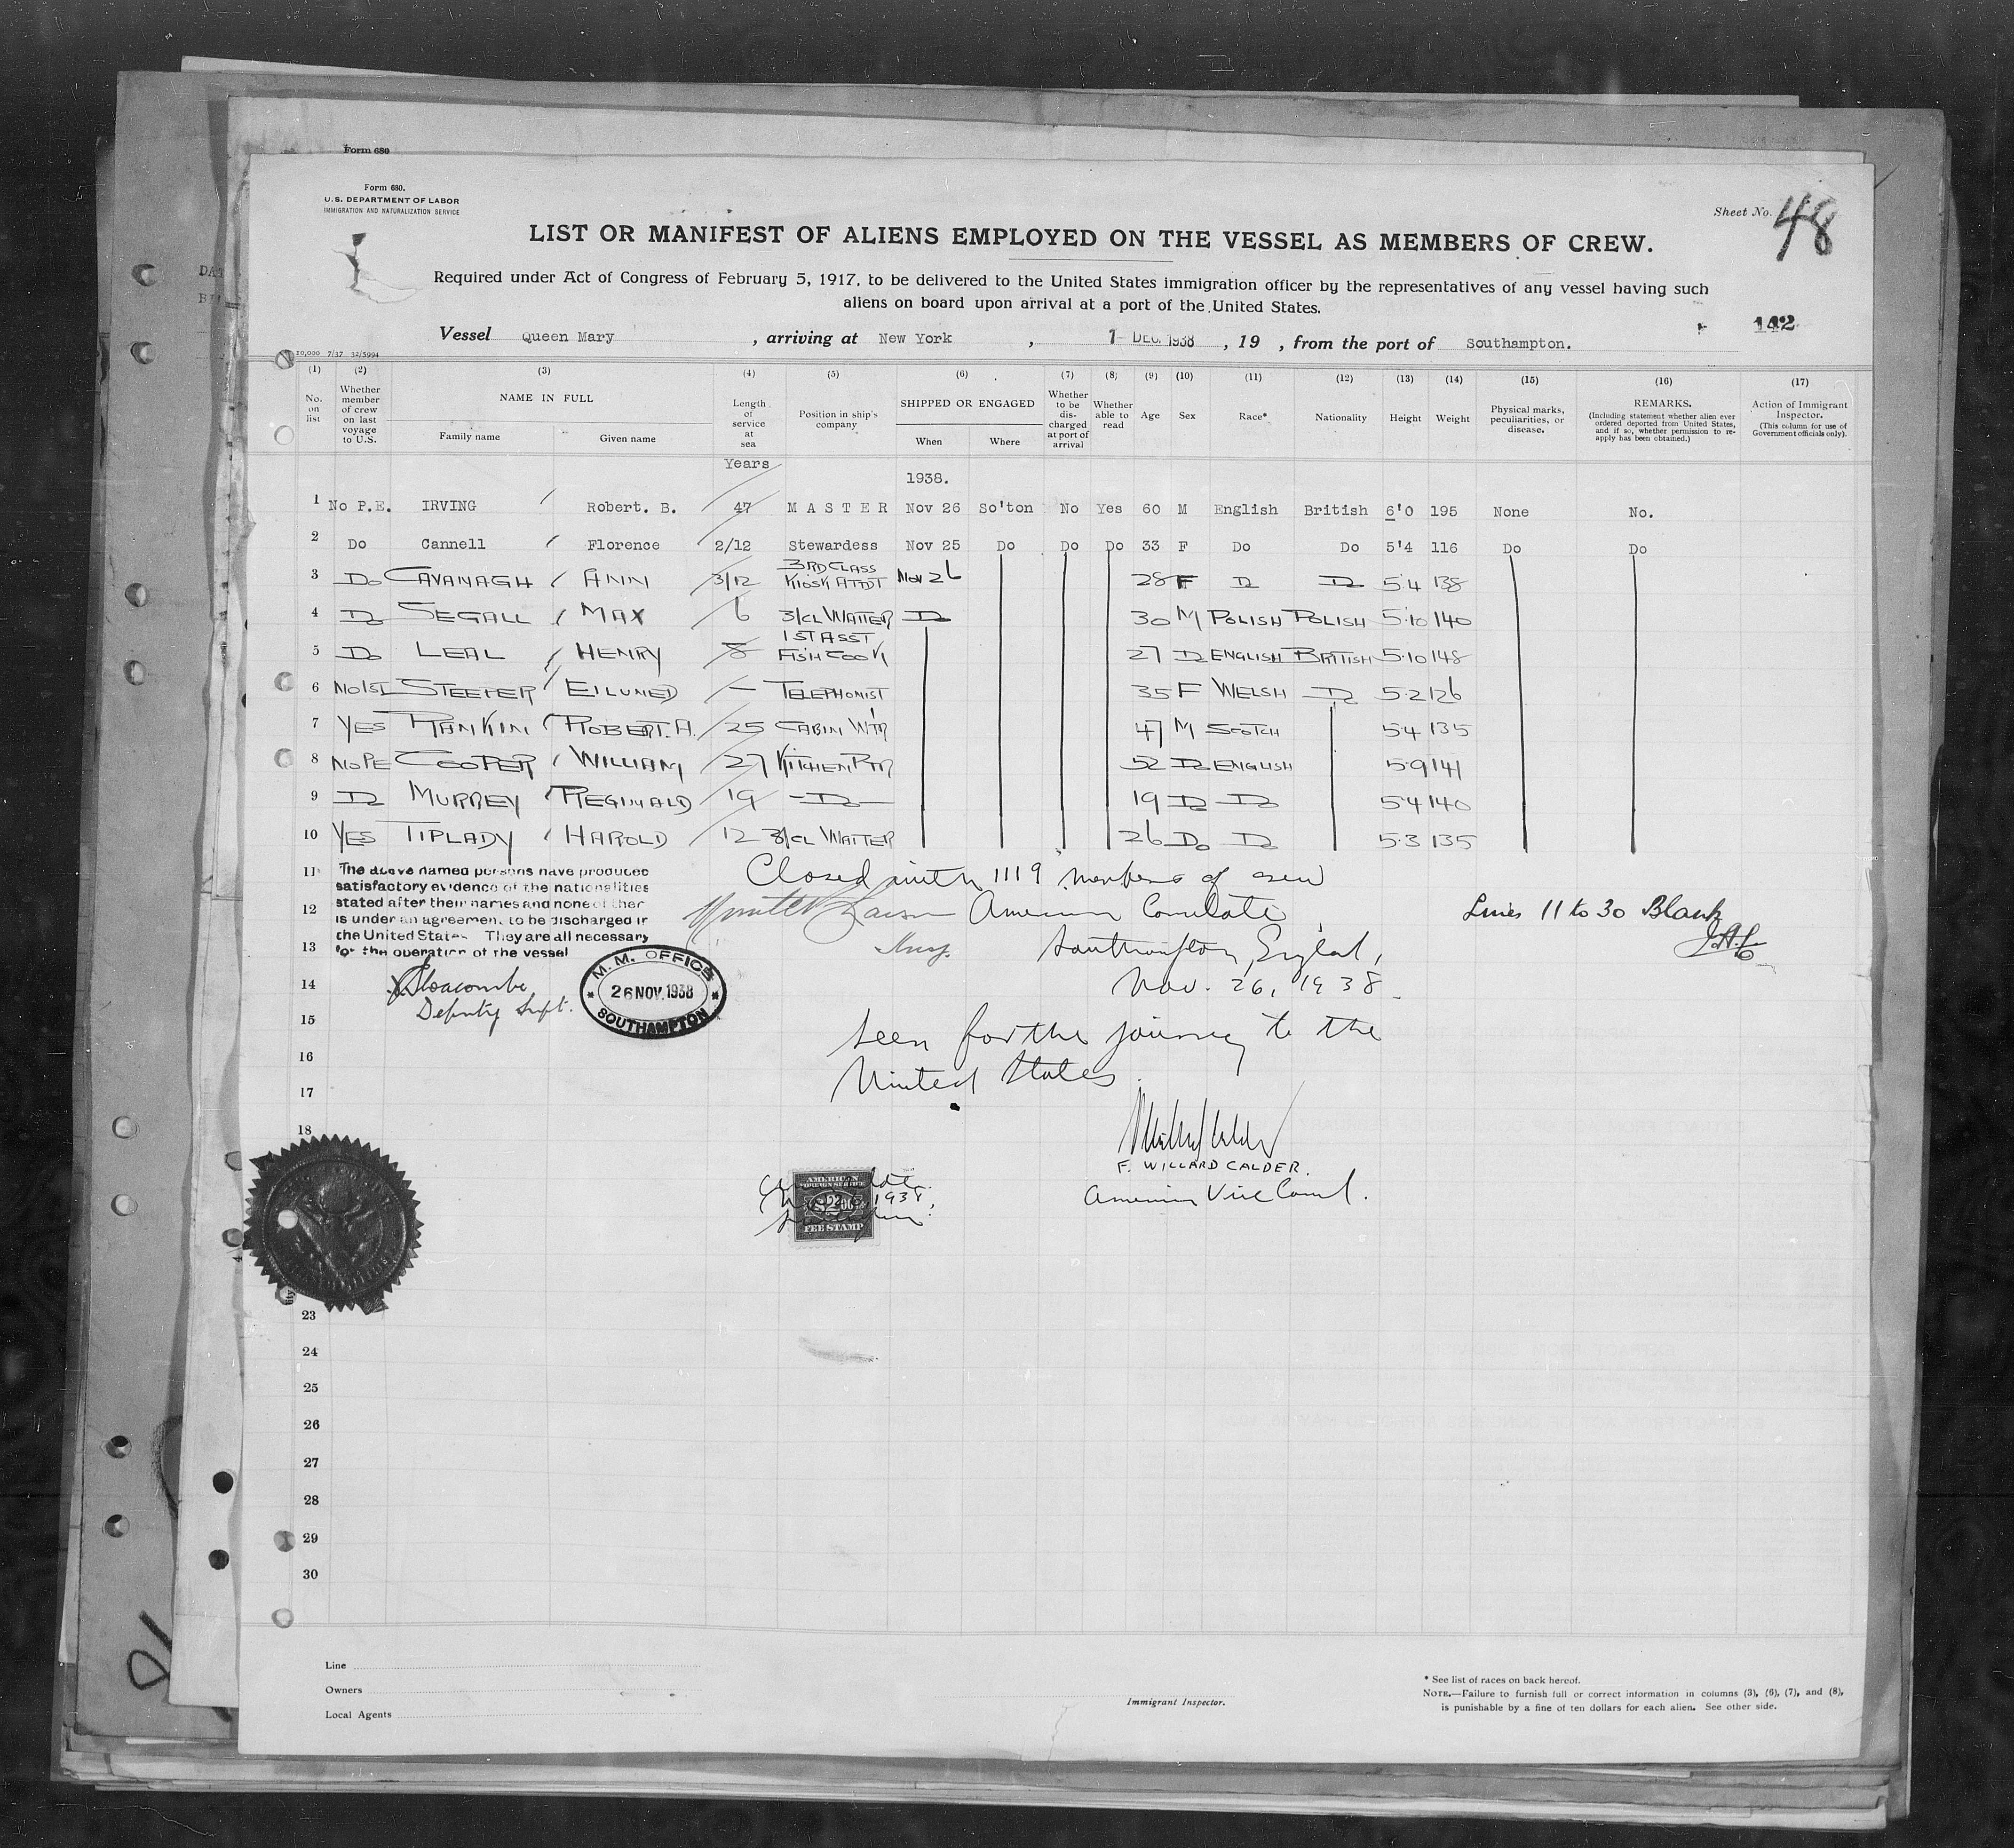 Form 680
Form 680.
U.S. DEPARTMENT OF LABOR
IMMIGRATION AND NATURALIZATION SERVICE
Sheet No. 48
LIST OR MANIFEST OF ALIENS EMPLOYED ON THE VESSEL AS MEMBERS OF CREW.
Required under Act of Congress of February 5, 1917, to be delivered to the United States immigration officer by the representatives of any vessel having such
aliens on board upon arrival at a port of the United States.
142
Vessel Queen Mary , arriving at New York , 1 DEC. 1938 , 19 , from the port of Southampton.
10,000 7/37 32/5994
(1) (2) (3) (4) (5) (6) (7) (8) (9) (10) (11) (12) (13) (14) (15) (16) (17)
No. on list Whether member of crew on last voyage to U.S. NAME IN FULL Family name Given name Length of service at sea Position in ship's company SHIPPED OR ENGAGED When Where Whether to be discharged at port of arrival Whether able to read Age Sex Race* Nationality Height Weight Physical marks, peculiarities, or disease. REMARKS. (Including statement whether alien ever ordered deported from United States, and if so, whether permission to reapply has been obtained.) Action of Immigrant Inspector. (This column for use of Government officials only).
Years
1938.
1 No P.E. IRVING / Robert. B. 47 MASTER Nov 26 So'ton No Yes 60 M English British 6'0 195 None No.
2 Do Cannell / Florence 2/12 Stewardess Nov 25 Do Do Do 33 F Do Do 5'4 116 Do Do
3 Do CAVANAGH / ANN 3/12 3RD CLASS KIOSK ATDT Nov 26 28 F Do Do 5.4 138
4 Do SEGALL / MAX 6 3/CL WAITER Do 30 M POLISH POLISH 5.10 140
5 Do LEAL / HENRY 8 1ST ASST FISH COOK 27 Do ENGLISH BRITISH 5.10 148
6 NO 1ST STEEPER / EILUNED — TELEPHONIST 35 F WELSH Do 5.2 126
7 YES RANKIN / ROBERT. A. 25 CABIN WTR 47 M SCOTCH 5.4 135
8 NO PE COOPER / WILLIAM 27 KITCHEN PTR 52 Do ENGLISH 5.9 141
9 Do MURREY / REGINALD 19 —Do— 19 Do Do 5.4 140
10 YES TIPLADY / HAROLD 12 3/CL WAITER 26 Do Do 5.3 135
11
12
13
14
15
16
17
18
The above named persons have produced
satisfactory evidence of the nationalities
stated after their names and none of ther
is under an agreement to be discharged in
the United States They are all necessary
for the operation of the vessel
Deputy Supt.
M.M. OFFICE
* 26 NOV. 1938 *
SOUTHAMPTON
Closed with 1119 members of crew
American Consulate
Southampton, England,
Nov. 26, 1938.
Lines 11 to 30 Blank
Seen for the journey to the
United States.
F. WILLARD CALDER.
American Vice Consul.
AMERICAN
FOREIGN SERVICE
$2.00
FEE STAMP
1938,
23
24
25
26
27
28
29
30
Line
Owners
Local Agents
Immigrant Inspector.
* See list of races on back hereof.
NOTE.—Failure to furnish full or correct information in columns (3), (6), (7), and (8),
is punishable by a fine of ten dollars for each alien. See other side.